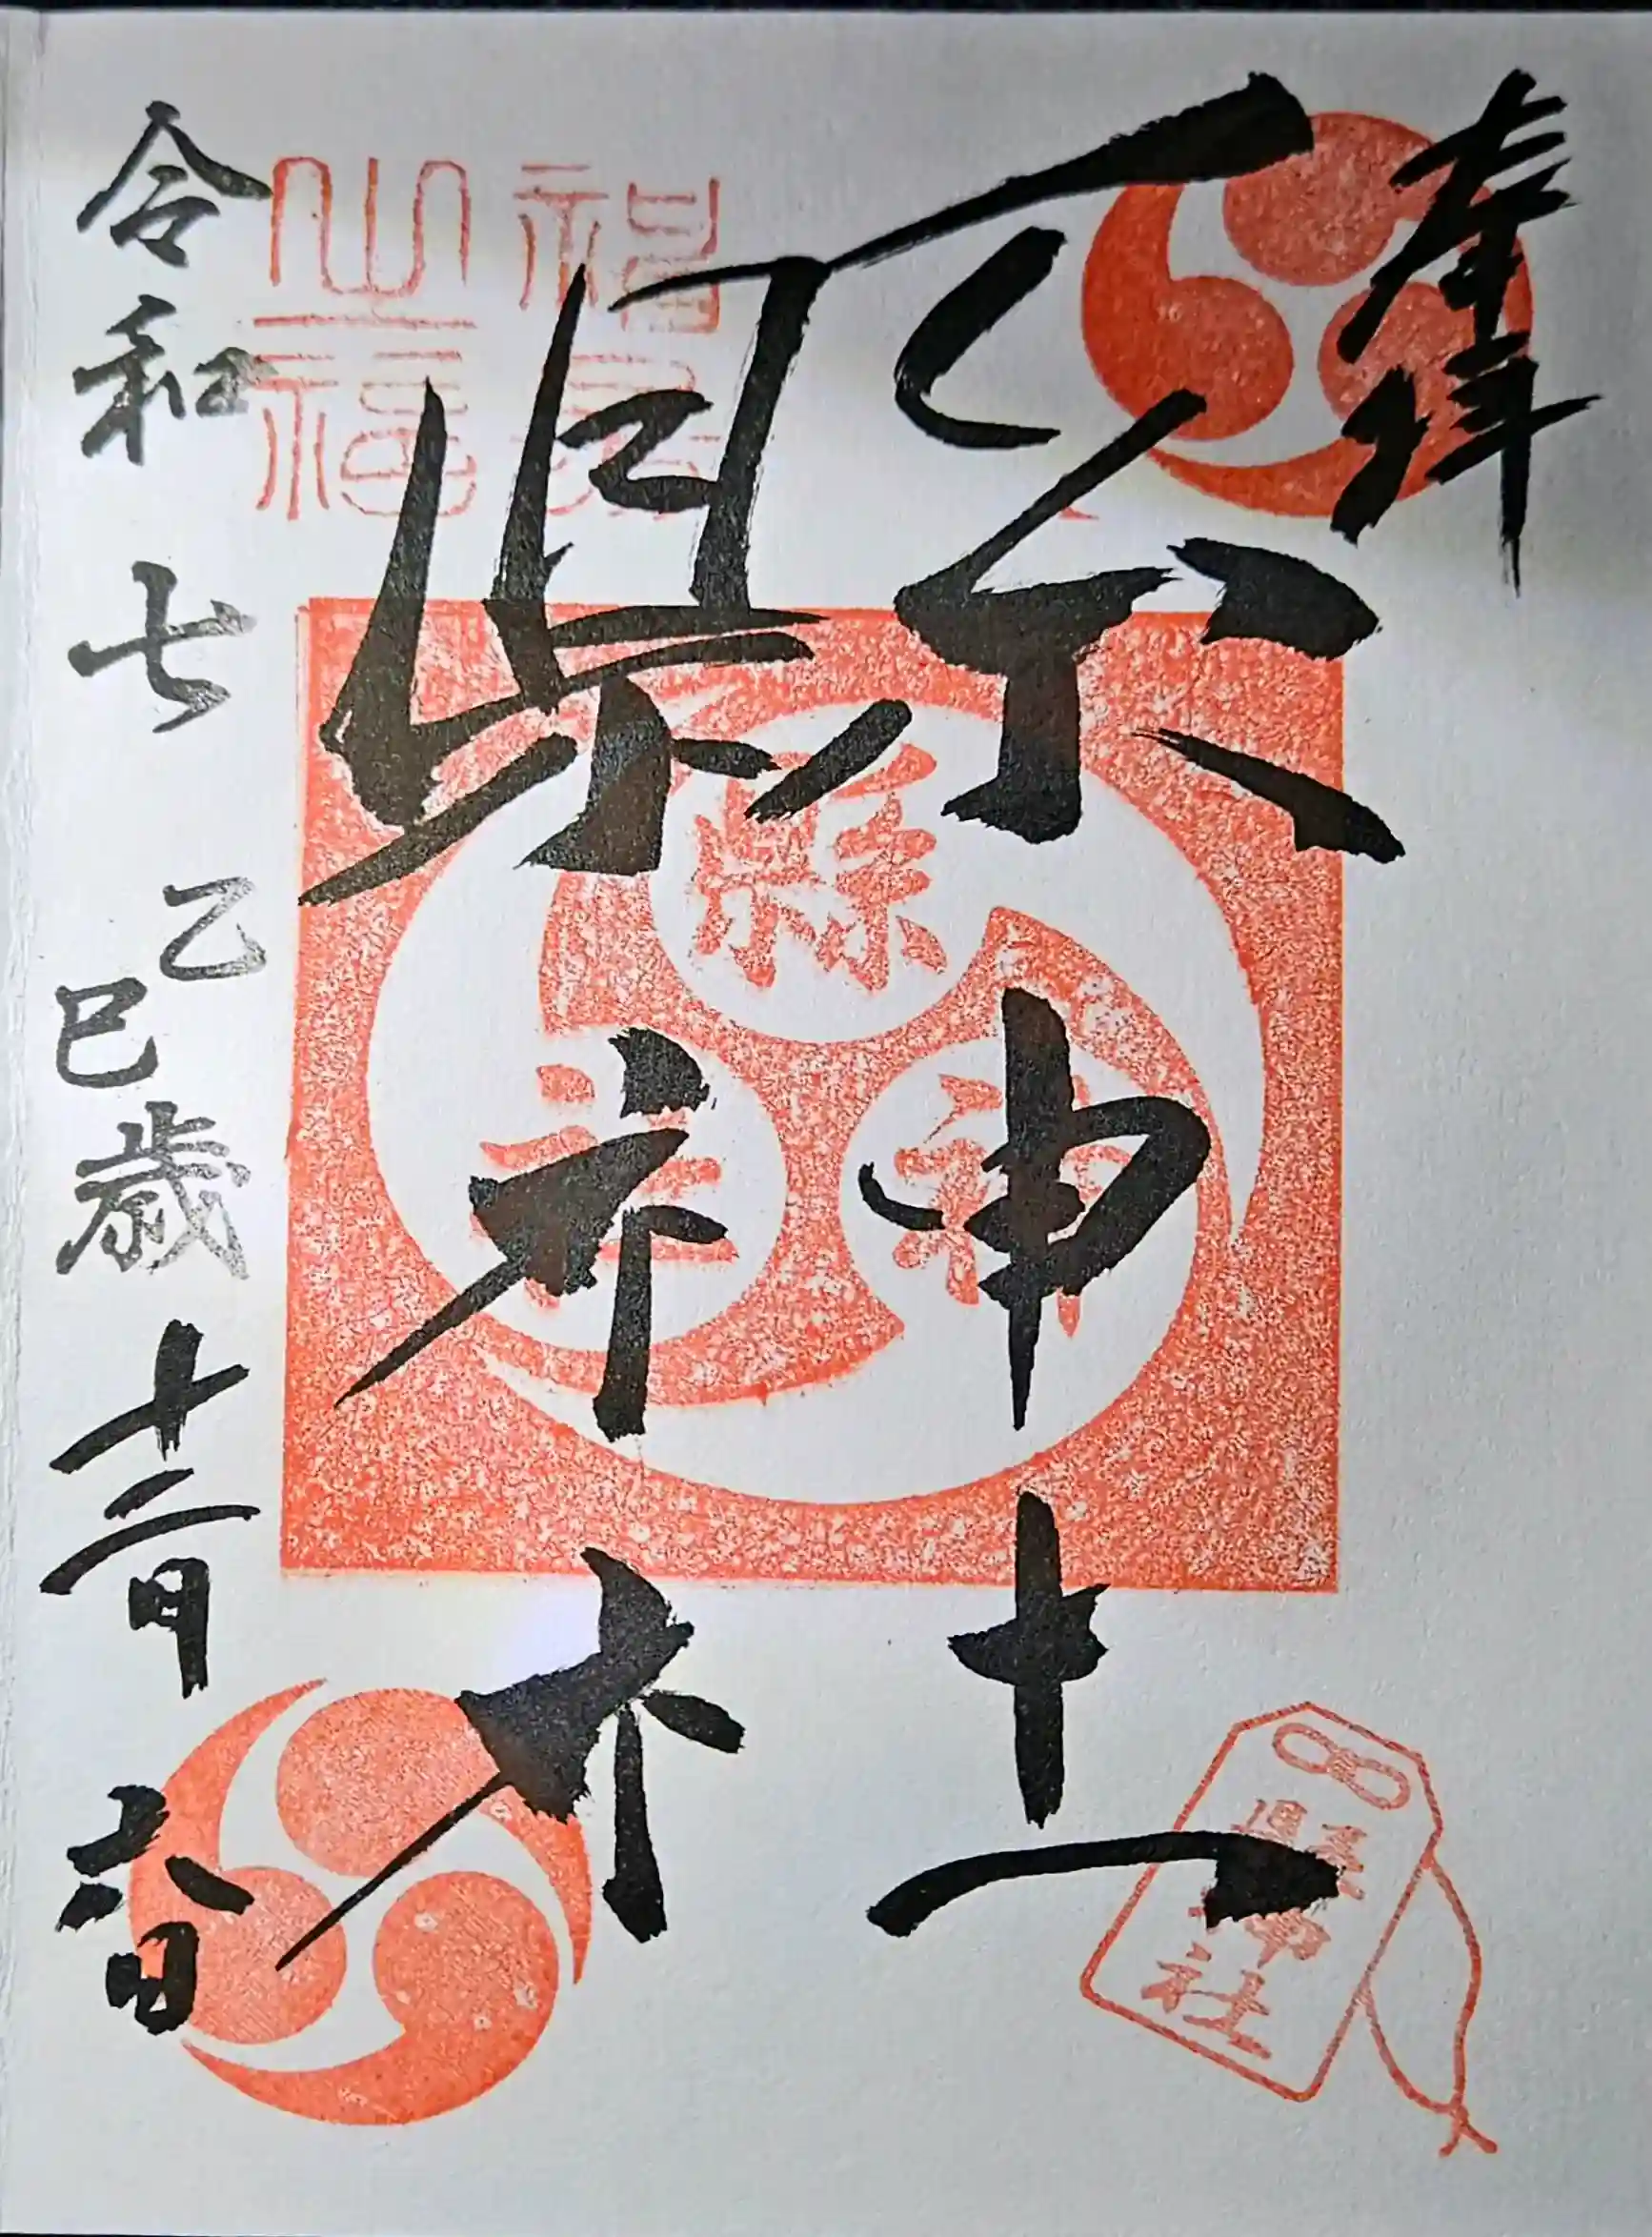 奉拝
縣神社
令和七乙巳歳十二月六日
縣神社
縣神社